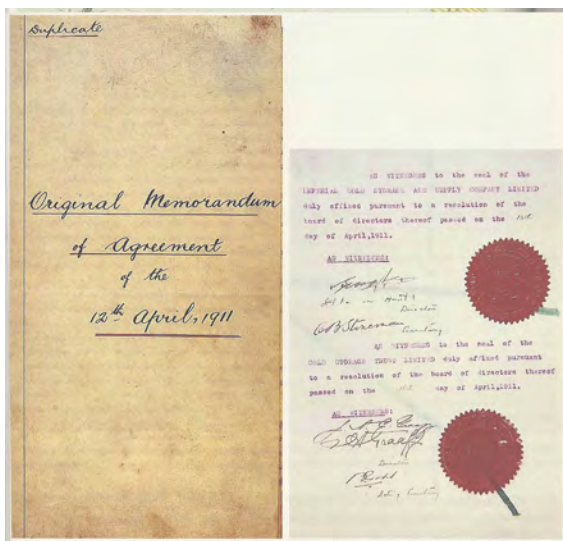 Duplicate
Original Memorandum
of Agreement
of the
12th April, 1911
AS WITNESSES to the seal of the
IMPERIAL COLD STORAGE AND SUPPLY COMPANY LIMITED
duly affixed pursuant to a resolution of the
board of directors thereof passed on the
day of April,1911.
AS WITNESSES:
Director
Secretary
AS WITNESSES to the seal of the
COLD STORAGE TRUST LIMITED duly affixed pursuant
to a resolution of the board of directors thereof
passed on the day of April,1911.
AS WITNESSES:
Graaff
Director
Secretary